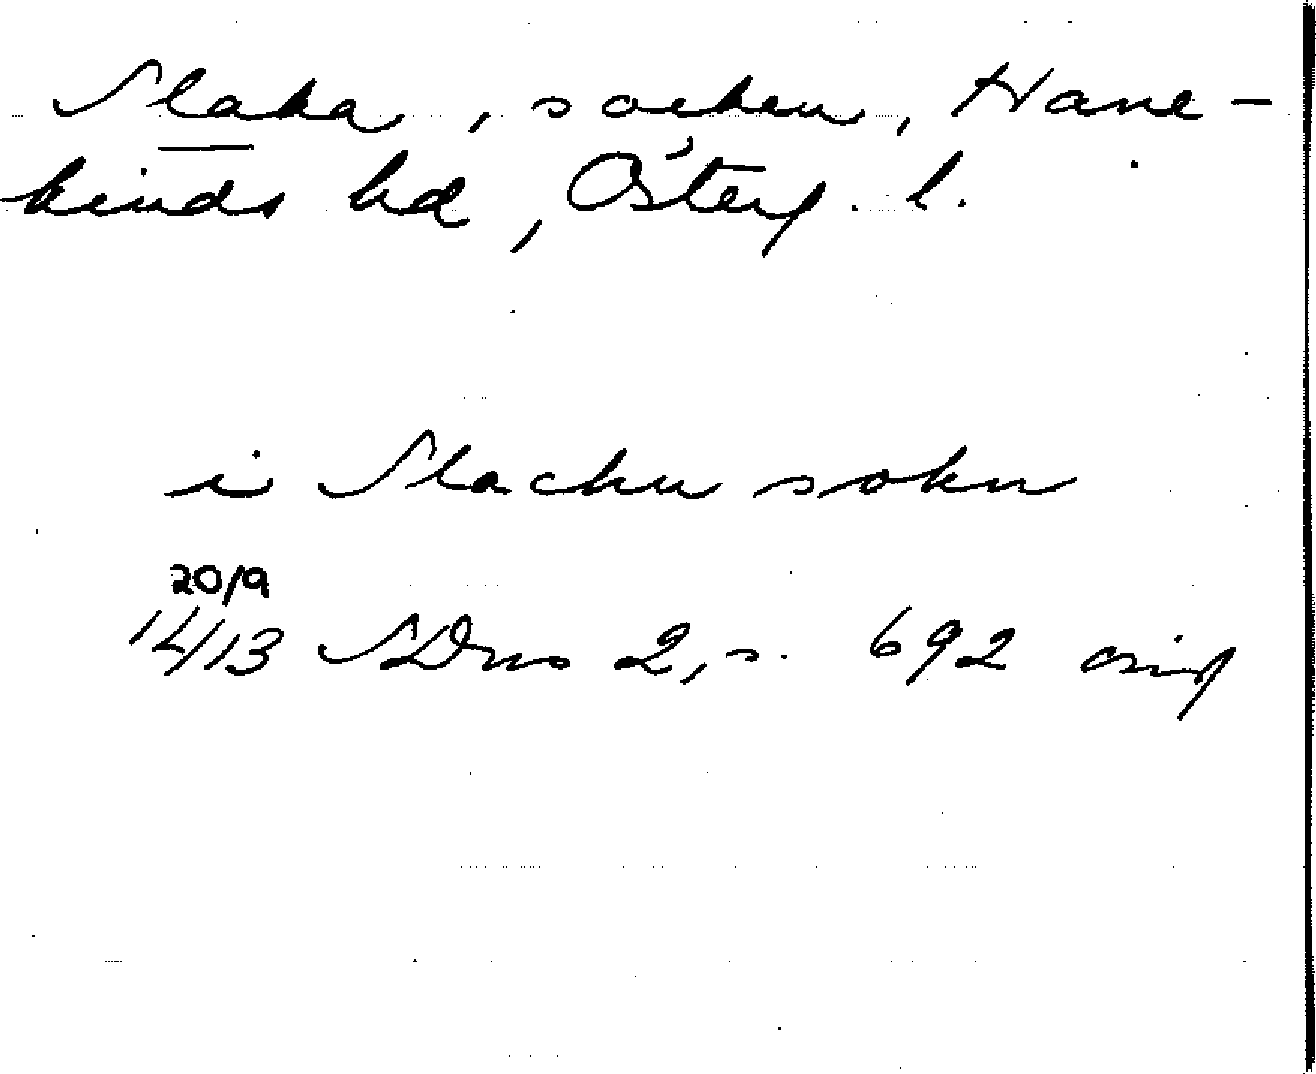 Slaka, socken, Hane-
kinds hd, Österg. l.
i Slachu sokn
20/9
1413 SDns 2, s. 692 orig